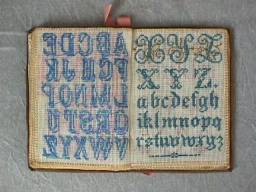 ABCDE
FGHJK
LMNOP
QRSTU
VWXYZ
X Y Z
X Y Z.
abcdefgh
iklmnopq
rstuvwxyz